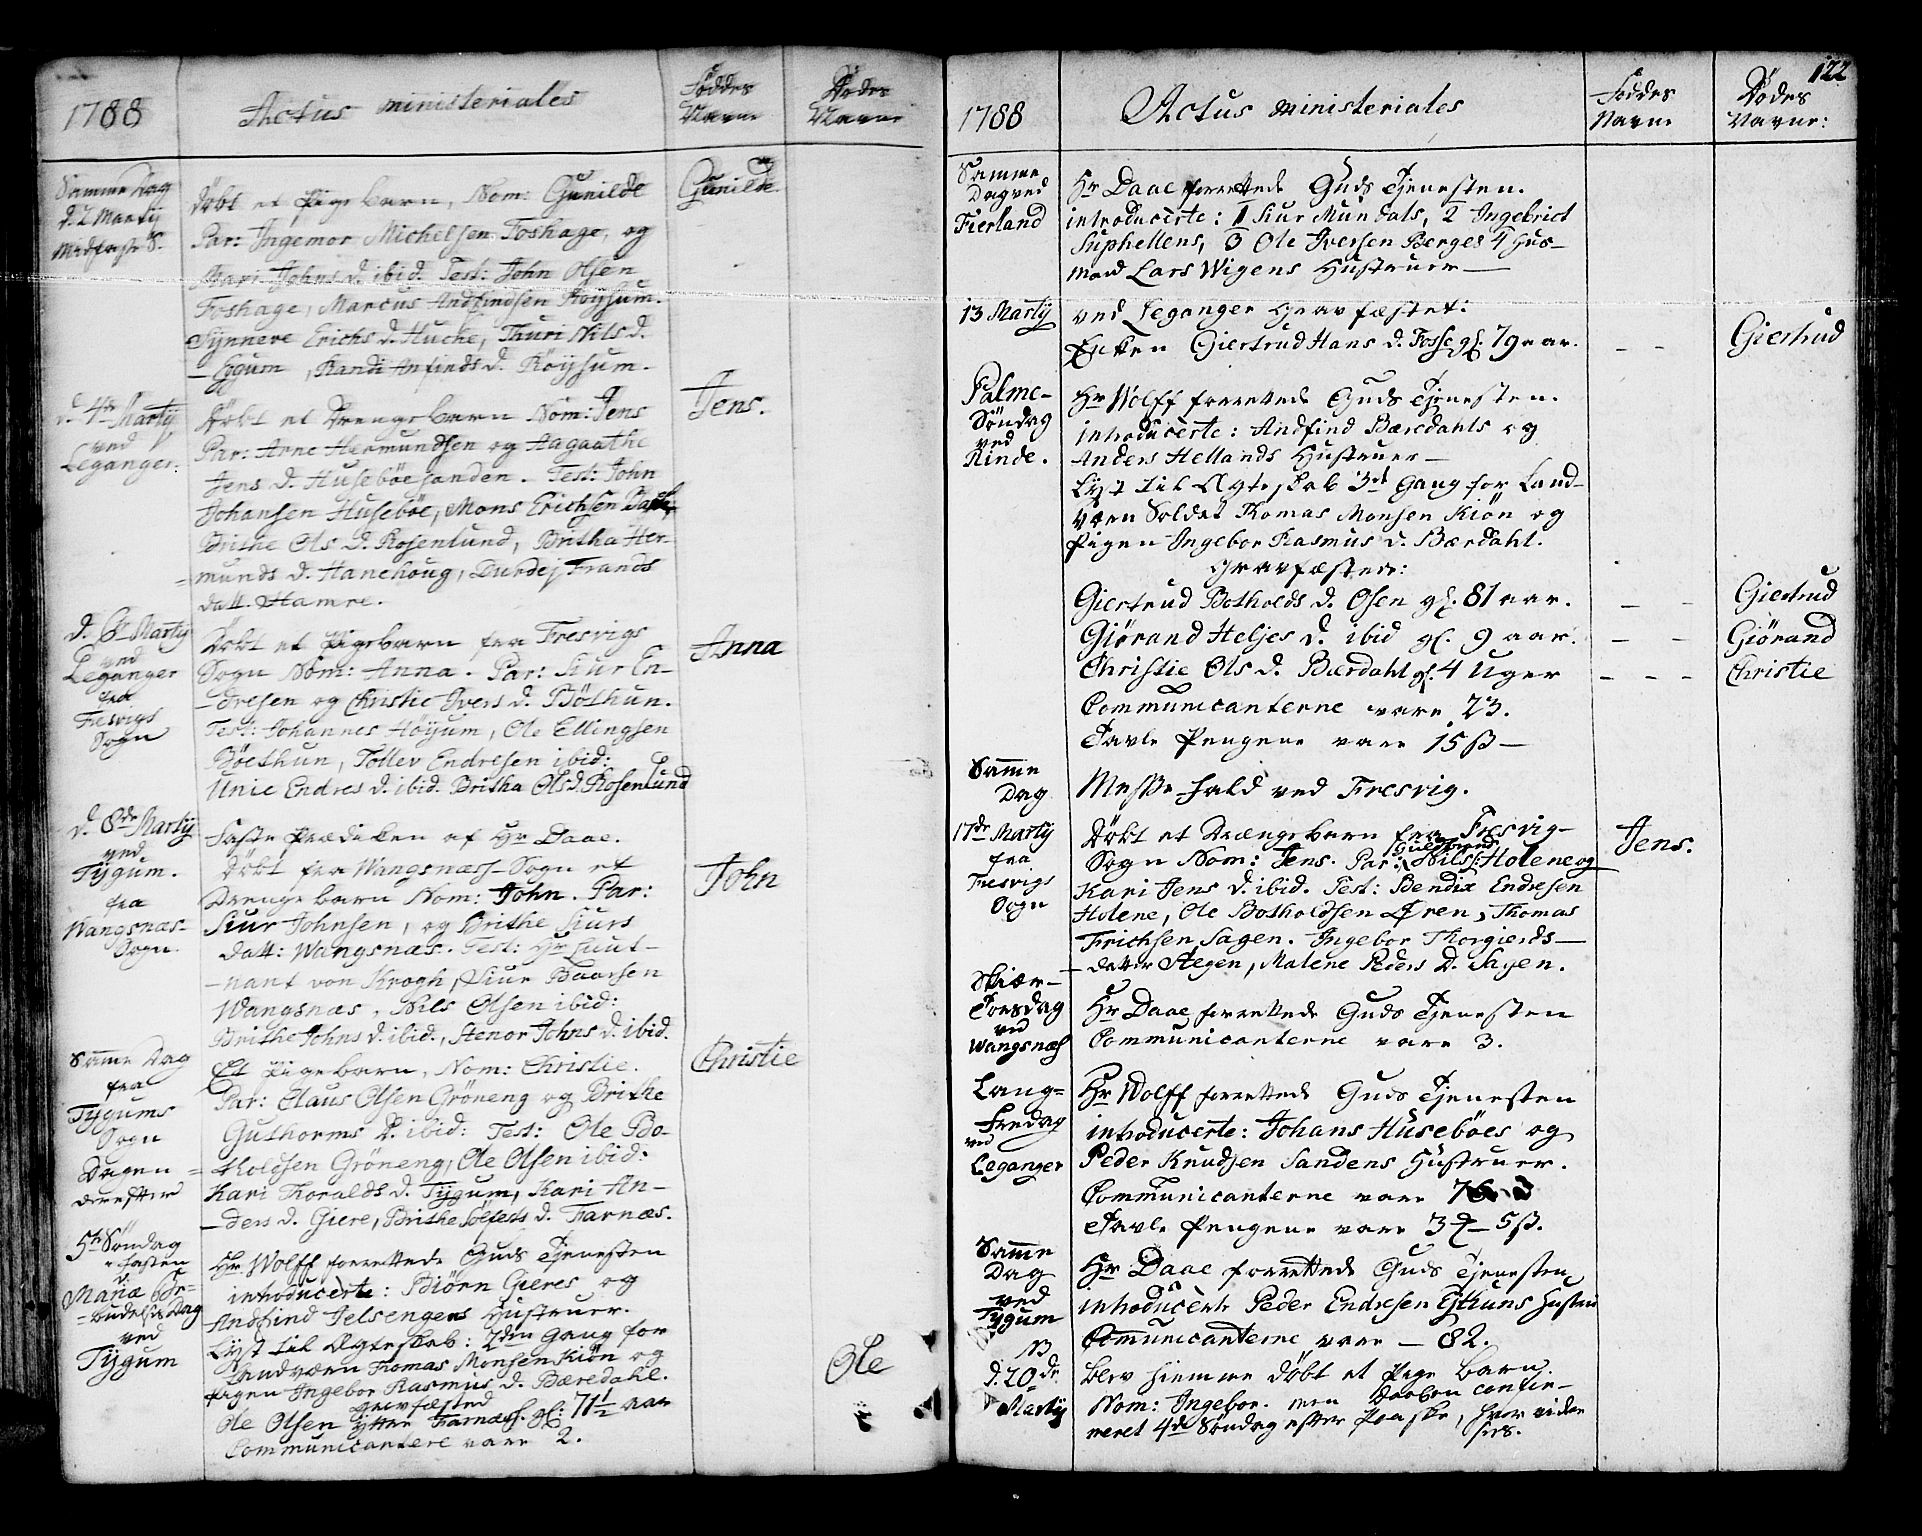 1788
Actus ministeriales
Føddes Navne
Dødes Navne
Samme Dag
d. 2 Martij
Midfaste S.
Døbt et Pigebarn, Nom: Gunilde
Gunilde
Par: Ingemor Michelsen Foshage, og
Kari Johns d. ibid. Test: John Olsen
Foshage, Marcus Andfindsen Röysum.
Synneve Erichs d. Huche, Thuri Nils d.
Tygum, Randi Anfinds d. Röysum.
d. 4de Martij
ved
Leganger.
Døbt et Drengebarn Nom: Jens
Jens.
Par: Arne Hermundsen og Aagaathe
Jens d. Husebøesanden. Test: John
Johansen Husebøe, Mons Erichsen
Brithe Ols d. Rosenlund, Britha Her-
=munds d. Hanehoug, Durdej Frands
datt. Hamre.
d. 6te Martij
ved
Leganger
fra
Fresvigs
Sogn
Døbt et Pigebarn fra Fresvigs
Sogn Nom: Anna. Par: Siur En-
Anna
-dresen og Christie Ivers d. Böthun.
Test: Johannes Höyum, Ole Ellingsen
Böethun, Tollev Endresen ibid:
Unie Endres d. ibid. Britha Ols d. Rosenlund
d. 8de Martij
ved
Tygum.
fra
Wangsnæs-
Sogn.
Faste Prædiken af Hr Daae.
Døbt fra Wangsnæss-Sogn et
Drengebarn Nom: John. Par:
John
Siur Johnsen, og Brithe Siurs
datt: Wangsnæs. Test: Hr Liut-
-nant von Krogh, Siur Baarsen
Wangsnæs, Nils Olsen ibid:
Brithe Johns d. ibid., Stenor Johns d. ibid.
Samme Dag
fra
Tygums
Sogn
Dagen =
derefter
Et Pigebarn, Nom: Christie.
Christie
Par: Claus Olsen Gröneng og Brithe
Guthorms d. ibid: Test: Ole Bo-
tholdsen Gröneng, Ole Olsen ibid:
Kari Thoralds d. Tygum, Kari An-
-ders d. Giere, Brithe Solfests d. Farnæs.
5te Søndag
i Fasten
d.
Mariæ Be-
=budelses Dag
ved
Tygum
Hr Wolff forrettede Guds Tjenesten
introducerte: Biörn Gieres og
Andfind Jelsengens Hustruer.
Lyst til Ægteskab: 2den Gang for
Landværn Thomas Monsen Kiön og
Pigen Ingebor Rasmus d. Bæredahl.
gravfæsted
Ole Olsen Yttre Farnæss. gl: 71½ aar
Ole
Communicantere vare 2.
122
1788
Actus ministeriales
Føddes Navne
Dødes Navne:
Samme
Dag ved
Fierland
Hr Daae forrettede Guds Tjenesten.
introducerte: 1 Siur Mundals, 2 Ingebrict
Suphellens, 3 Ole Iversen Berges 4 Hus-
mand Lars Wigens Hustruer —
13 Martij
ved Leganger Gravfæstet:
Enken Giertrud Hans d. Fosse gl. 79 aar. — —
Giertrud
Palme-
Söndag
ved
Rinde.
Hr Wolff forrettede Guds Tjenesten.
introducerte: Andfind Bæredahls og
Anders Hellands Hustruer —
Lyst til Ægteskab 3de Gang for Land-
værn Soldat Thomas Monsen Kiön og
Pigen Ingebor Rasmus d. Bærdahl.
Gravfæstede:
Giertrud Botholds d. Osen gl. 81 aar. — —
Giertrud
Giörand Heljes d. ibid gl. 9 aar. — —
Giörand
Christie Ols d. Bærdahl gl. 4 Uger — — —
Christie
Communicanterne vare 23.
Tavle Pengene vare 15 ß —
Samme
Dag
Messe Fald ved Fresvig.
17de Martij
fra
Fresvigs
Sogn
Døbt et Drængebarn fra Fresvig-
Sogn Nom: Jens. Par: Nils Holene og
Jens.
Kari Jens d. ibid. Test: Bendix Endresen
Holene, Ole Botholdsen Øren, Thomas
Erichsen Sagen. Ingebor Thorgierds —
datter Stegen, Malene Peders d. Sagen.
Skiær-
Torsdag
ved
Wangsnæs
Hr Daae forrettede Guds Tjenesten
Communicanterne vare 3.
Lang-
Fredag
ved
Leganger
Hr Wolff forrettede Guds Tjenesten
introducerte: Johans Huseböes og
Peder Knudsen Sandens Hustruer.
Communicanterne vare
Tavle Pengene vare 3 — 5 ß.
Samme
Dag
ved
Tygum
Hr Daae forrettede Guds Tjenesten
introducerte Peder Endresen Esthuns Hustru
Communicanterne vare — 82.
d. 20de
Martij
blev hjemme döbt et Pige Barn
Nom: Ingebor. men Daaben confir-
meret 4de Söndag efter Paaske,